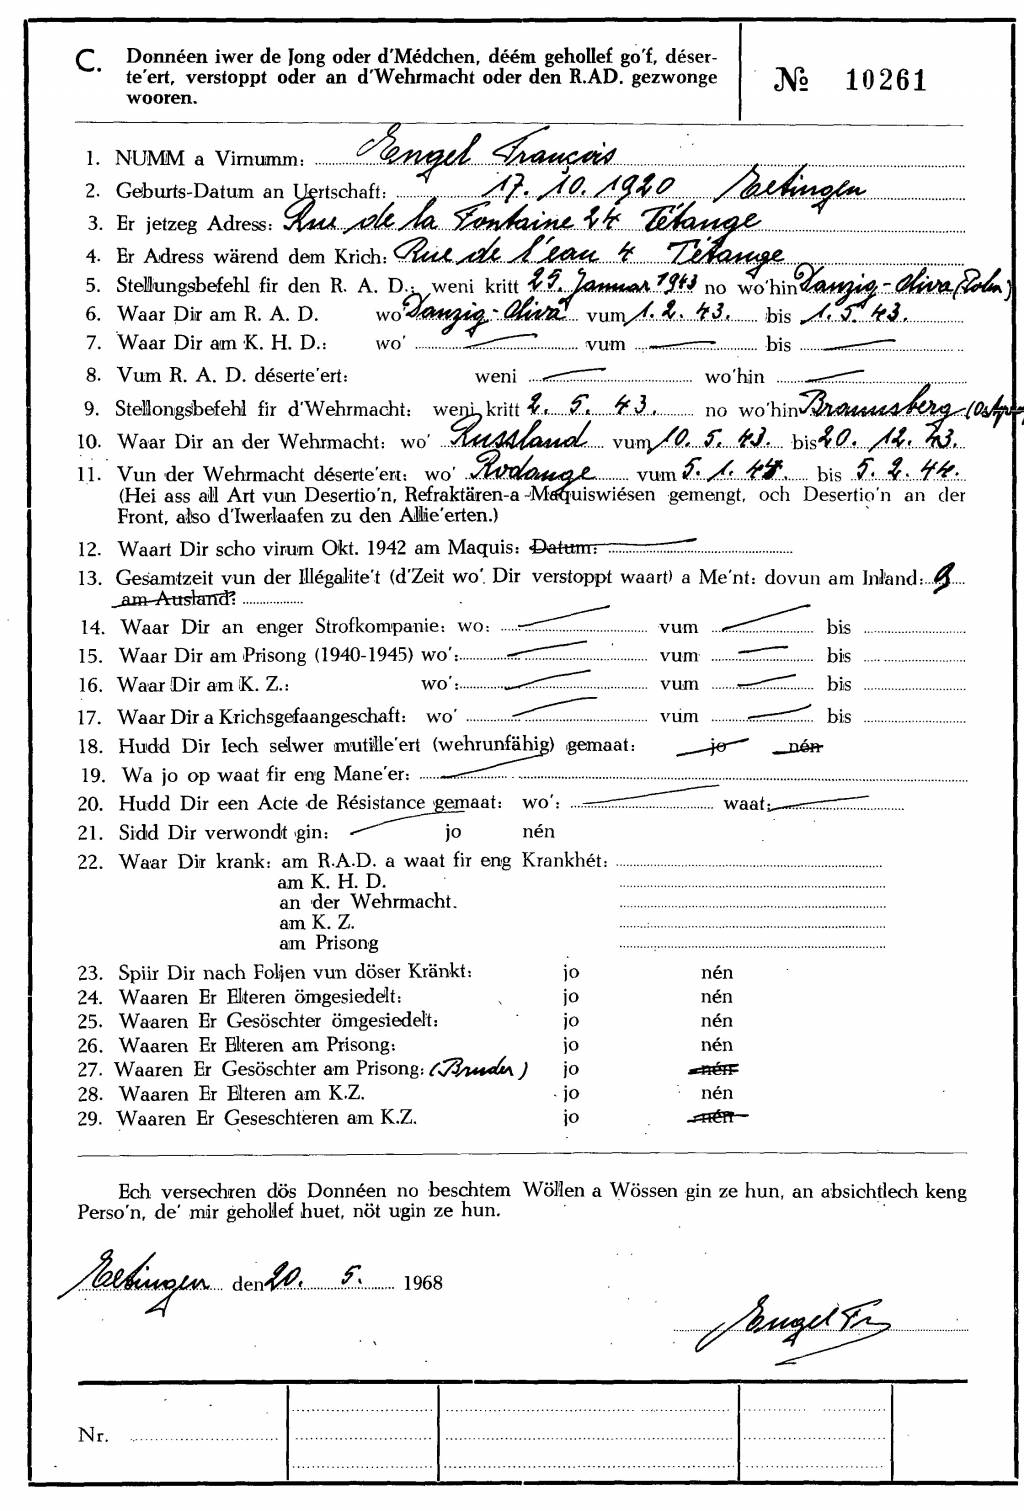 C. Donnéen iwer de Jong oder d'Médchen, déém gehollef go'f, déser-
te'ert, verstoppt oder an d'Wehrmacht oder den R.AD. gezwonge
wooren.
№ 10261
1. NUMM a Virnumm: Engel François
2. Geburts-Datum an Uertschaft: 17. 10. 1920 Eltingen
3. Er jetzeg Adress: Rue de la Fontaine 24 Tétange
4. Er Adress wärend dem Krich: Rue de l'eau 4 Tétange
5. Stellungsbefehl fir den R. A. D.: weni kritt 25. Januar 1943 no wo'hin Danzig-Oliva (Polen)
6. Waar Dir am R. A. D. wo' Danzig-Oliva vum 1. 2. 43. bis 1. 5. 43.
7. Waar Dir am K. H. D.: wo' vum bis
8. Vum R. A. D. déserte'ert: weni wo'hin
9. Stellongsbefehl fir d'Wehrmacht: weni kritt 2. 5. 43. no wo'hin Braunsberg
10. Waar Dir an der Wehrmacht: wo' Russland vum 10. 5. 43. bis 20. 12. 43.
11. Vun der Wehrmacht déserte'ert: wo' Rodange vum 5. 1. 44. bis 5. 2. 44.
(Hei ass all Art vun Desertio'n, Refraktären-a -Maquiswiésen gemengt, och Desertio'n an der
Front, also d'Iwerlaafen zu den Allie'erten.)
12. Waart Dir scho virum Okt. 1942 am Maquis: Datum:
13. Gesamtzeit vun der Illégalite't (d'Zeit wo' Dir verstoppt waart) a Me'nt: dovun am Inland: 9
am Ausland:
14. Waar Dir an enger Strofkompanie: wo: vum bis
15. Waar Dir am Prisong (1940-1945) wo': vum bis
16. Waar Dir am K. Z.: wo': vum bis
17. Waar Dir a Krichsgefaangeschaft: wo' vum bis
18. Hudd Dir Iech selwer mutille'ert (wehrunfähig) gemaat: jo nén
19. Wa jo op waat fir eng Mane'er:
20. Hudd Dir een Acte de Résistance gemaat: wo': waat:
21. Sidd Dir verwondt gin: jo nén
22. Waar Dir krank: am R.A.D. a waat fir eng Krankhét:
am K. H. D.
an der Wehrmacht.
am K. Z.
am Prisong
23. Spiir Dir nach Foljen vun döser Kränkt: jo nén
24. Waaren Er Elteren ömgesiedelt: jo nén
25. Waaren Er Gesöschter ömgesiedelt: jo nén
26. Waaren Er Elteren am Prisong: jo nén
27. Waaren Er Gesöschter am Prisong: (Bruder) jo nén
28. Waaren Er Elteren am K.Z. jo nén
29. Waaren Er Geseschteren am K.Z. jo nén
Ech versechren dös Donnéen no beschtem Wöllen a Wössen gin ze hun, an absichtlech keng
Perso'n, de' mir gehollef huet, nöt ugin ze hun.
Eltingen den 20. 5. 1968
Engel Fr
Nr.